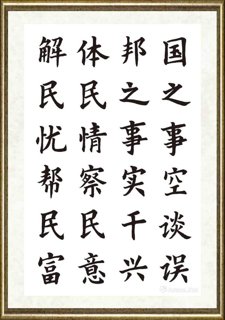 国之事空谈误
邦之事实干兴
体民情察民意
解民忧帮民富